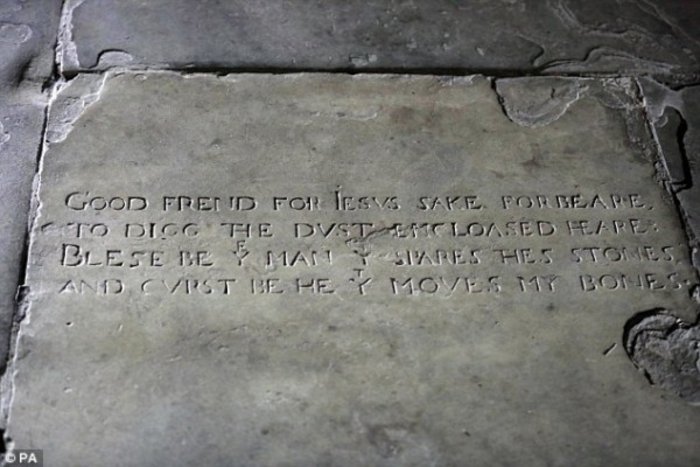 GOOD FREND FOR IESVS SAKE FORBEARE,
TO DIGG THE DVST ENCLOASED HEARE:
BLESE BE Yᴱ MAN Yᵀ SPARES THES STONES
AND CVRST BE HE Yᵀ MOVES MY BONES.
© PA